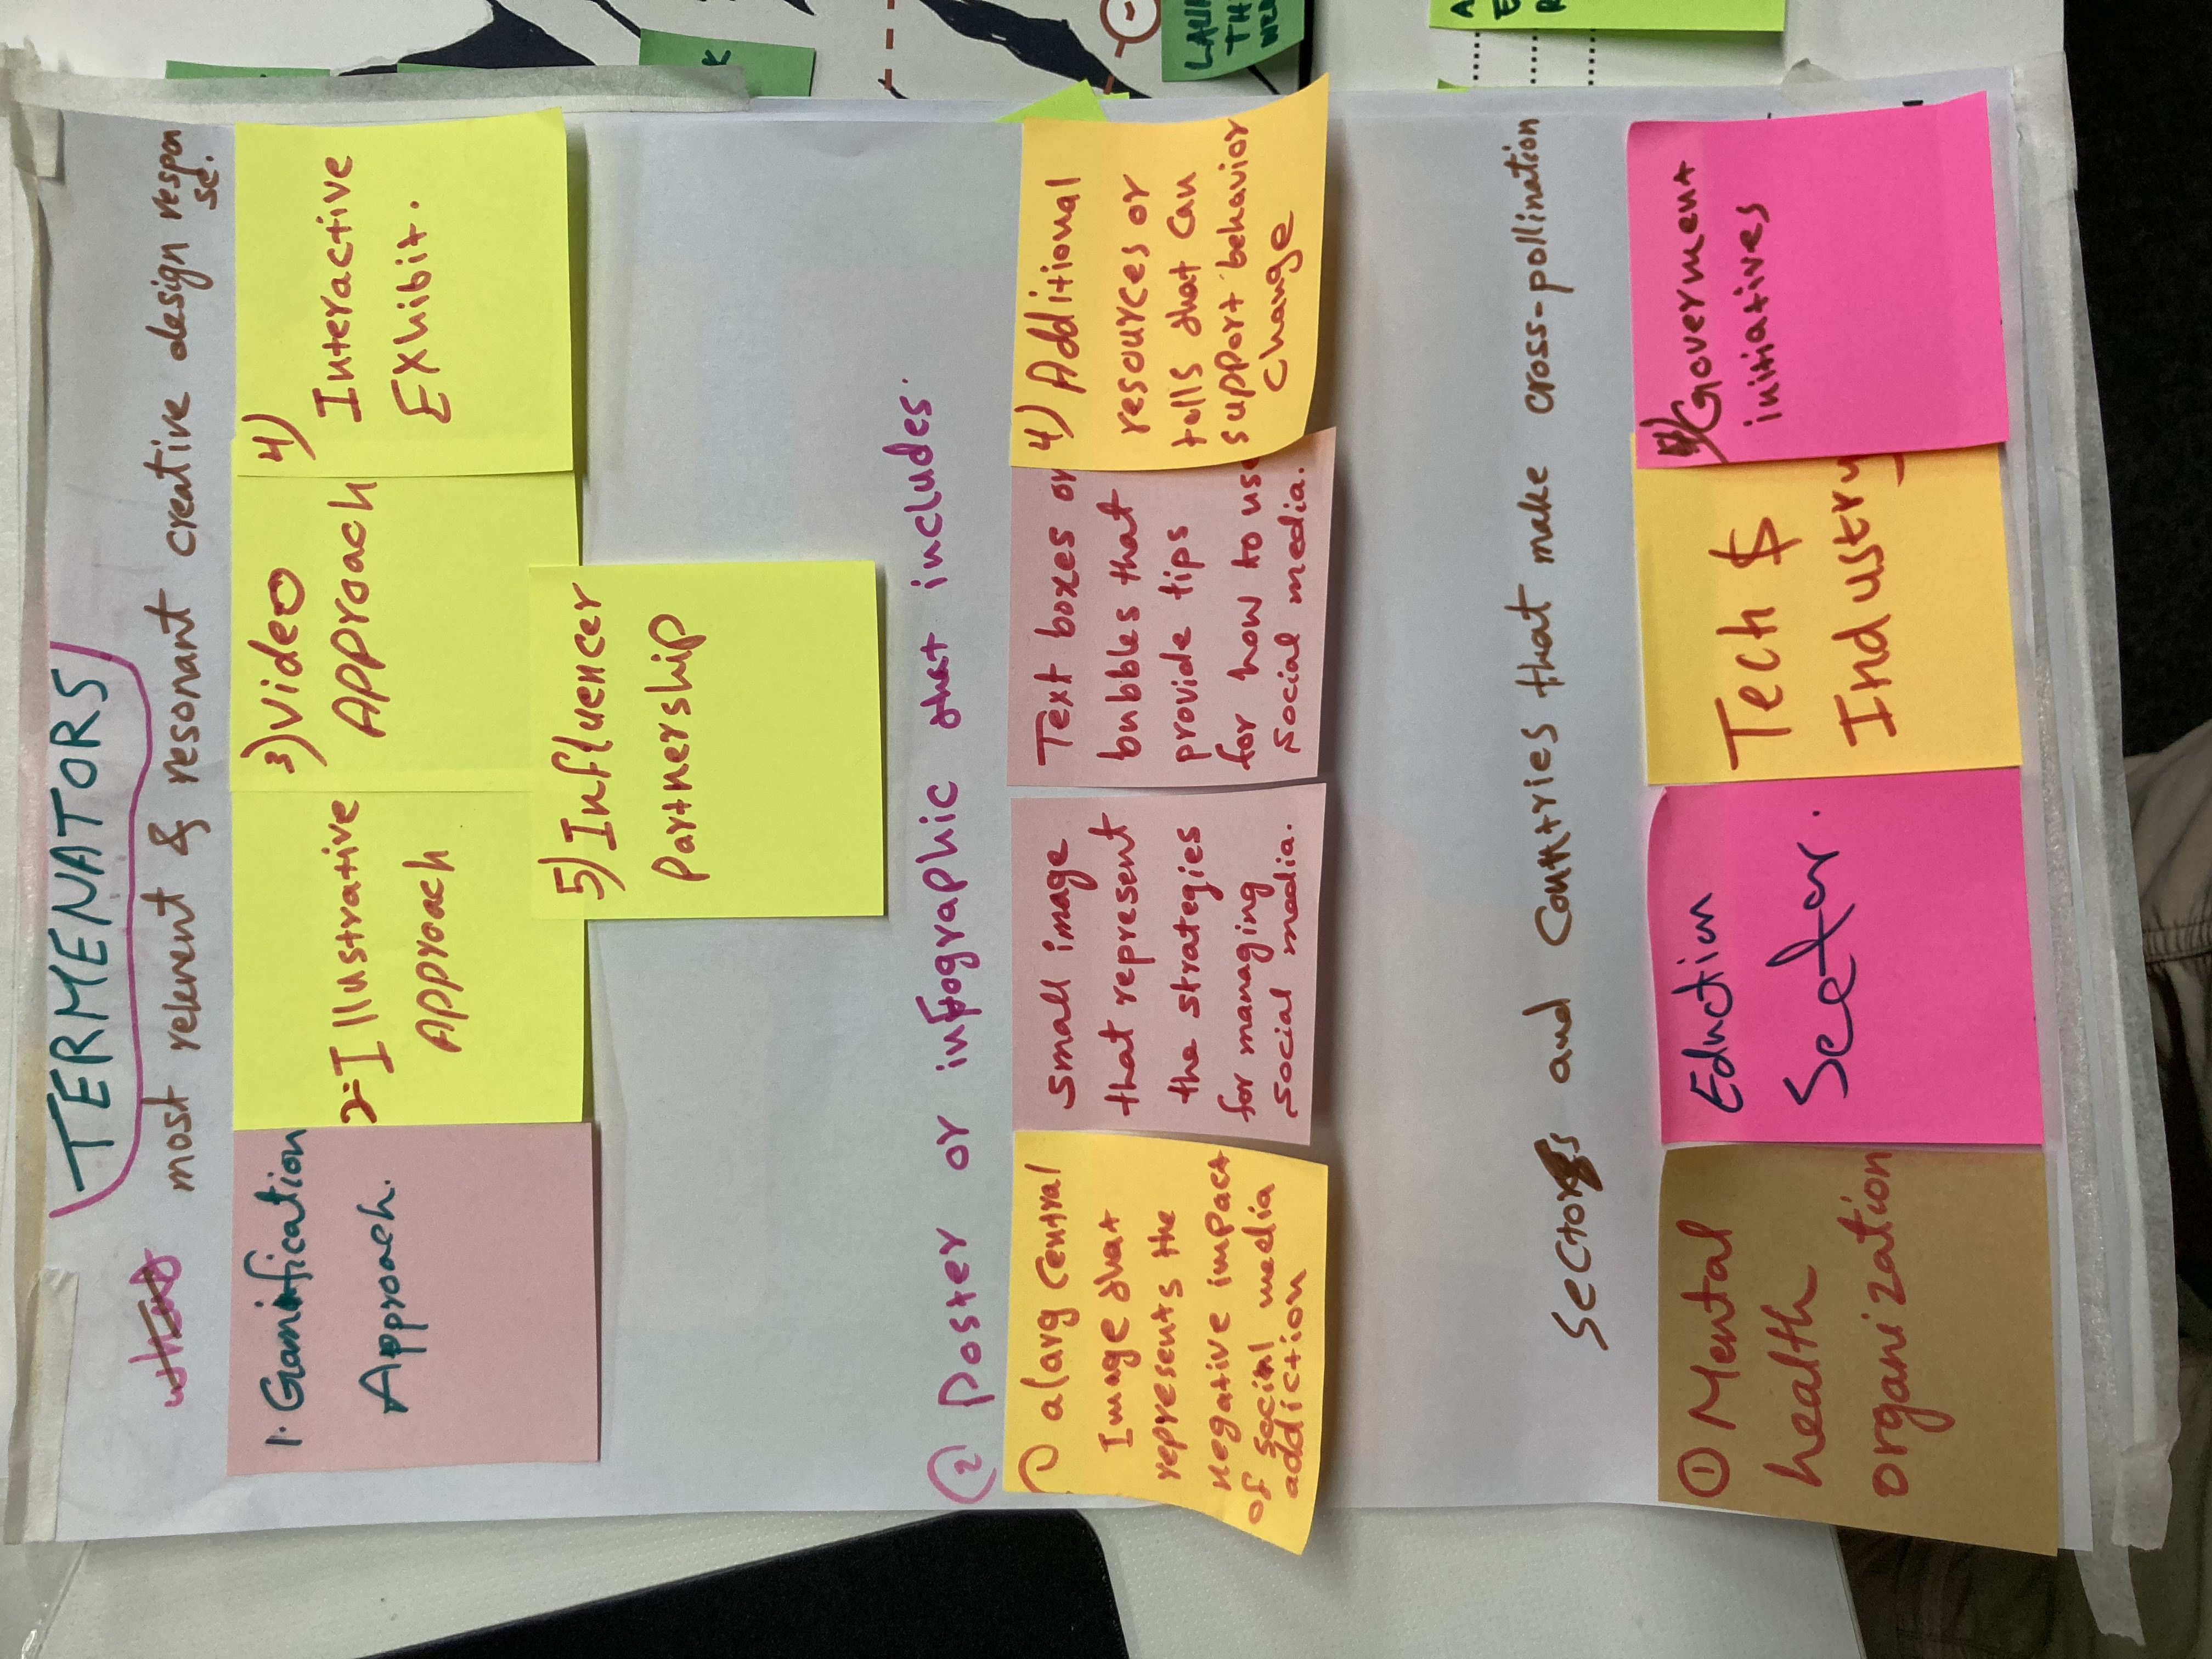 TERMENATORS
what most relevent & resonant creative design respon
se.
1. Gamification
Approach.
2- Illustrative
Approach
3) Video
Approach
4)
Interactive
Exhibit.
5) Influencer
Partnership
2 Poster or infographic that includes.
1 a larg central
Image that
represents the
negative impact
of social media
addiction
small image
that represent
the strategies
for managing
social media.
Text boxes or
bubbles that
provide tips
for how to use
social media.
4) Additional
resources or
tolls that can
support behavior
change
Sectors and Countries that make cross-pollination
1 Mental
health
organization
Eduction
Sector.
Tech $
Industry
4) Goverment
initiatives
K
LAU
TH
A
E
R